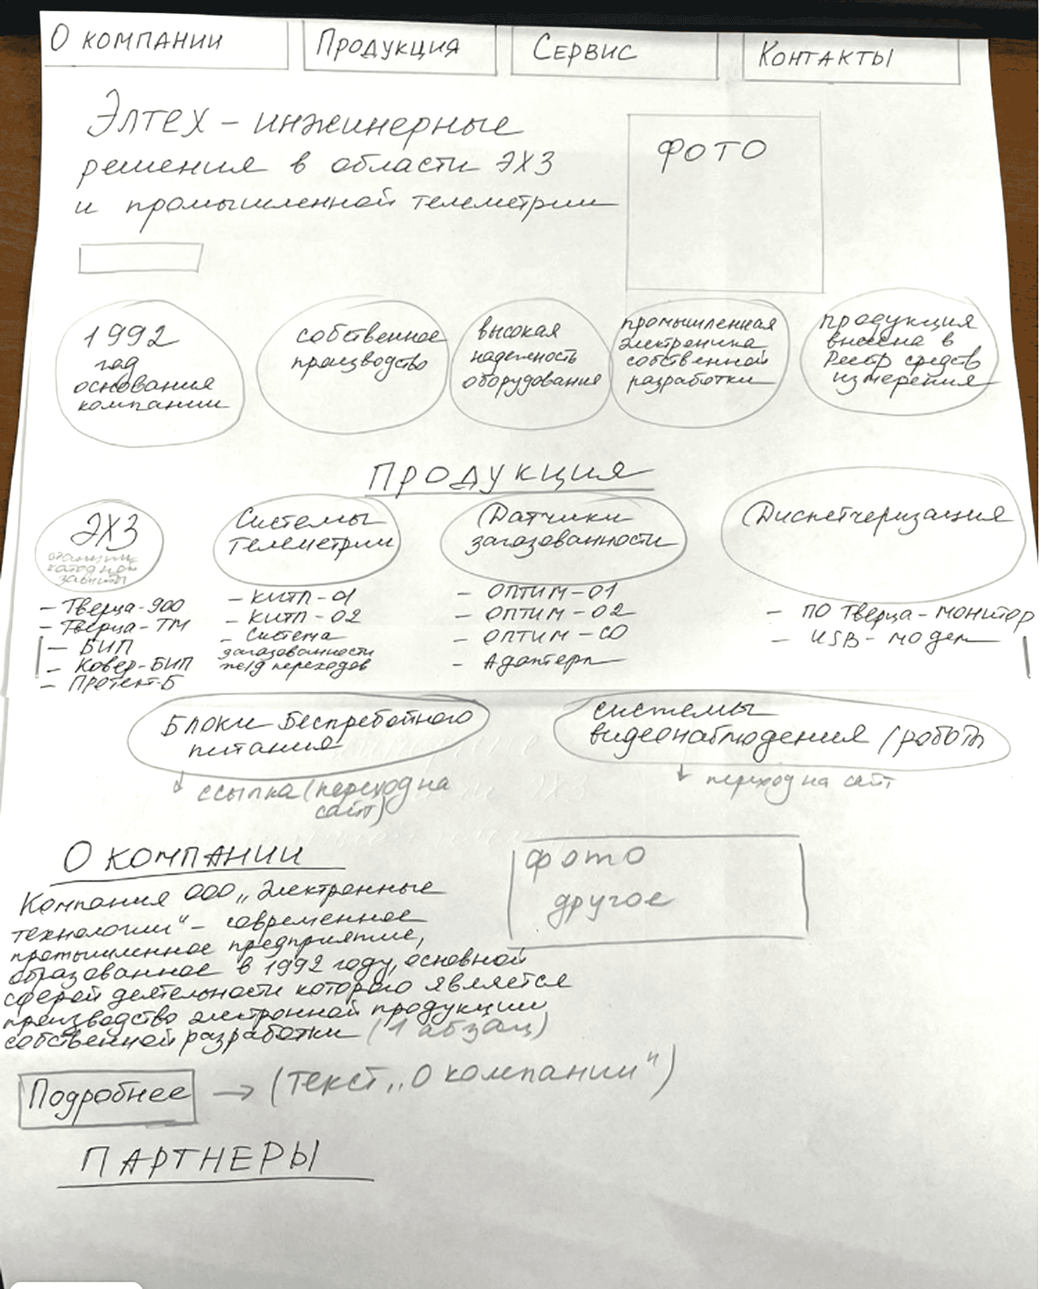 О компании
Продукция
Сервис
Контакты
Элтех – инжинерные
решения в области ЭХЗ
и промышленной телеметрии
фото
1992
год
основания
компании
собственное
производство
высокая
надежность
оборудования
промышленная
электроника
собственной
разработки
продукция
внесена в
Реестр средств
измерения
Продукция
ЭХЗ
катодной
защиты
Системы
телеметрии
Датчики
загазованности
Диспетчеризация
– Тверца-900
– Тверца-ТМ
– БИП
– Ковер-БИП
– Протект-Б
– КИТП-01
– КИТП-02
– Система
загазованности
ж/д переходов
– ОПТИМ-01
– ОПТИМ-02
– ОПТИМ-СО
– Адаптеры
– ПО Тверца-монитор
– USB-модем
Блоки Бесперебойного
питания
ссылка (переход на
сайт)
системы
видеонаблюдения /роботы
переход на сайт
О компании
Компания ООО „Электронные
технологии" – современное
промышленное предприятие,
образованное в 1992 году, основной
сферой деятельности которого является
производство электронной продукции
собственной разработки (1 абзац)
фото
другое
Подробнее → (текст „О компании")
Партнеры